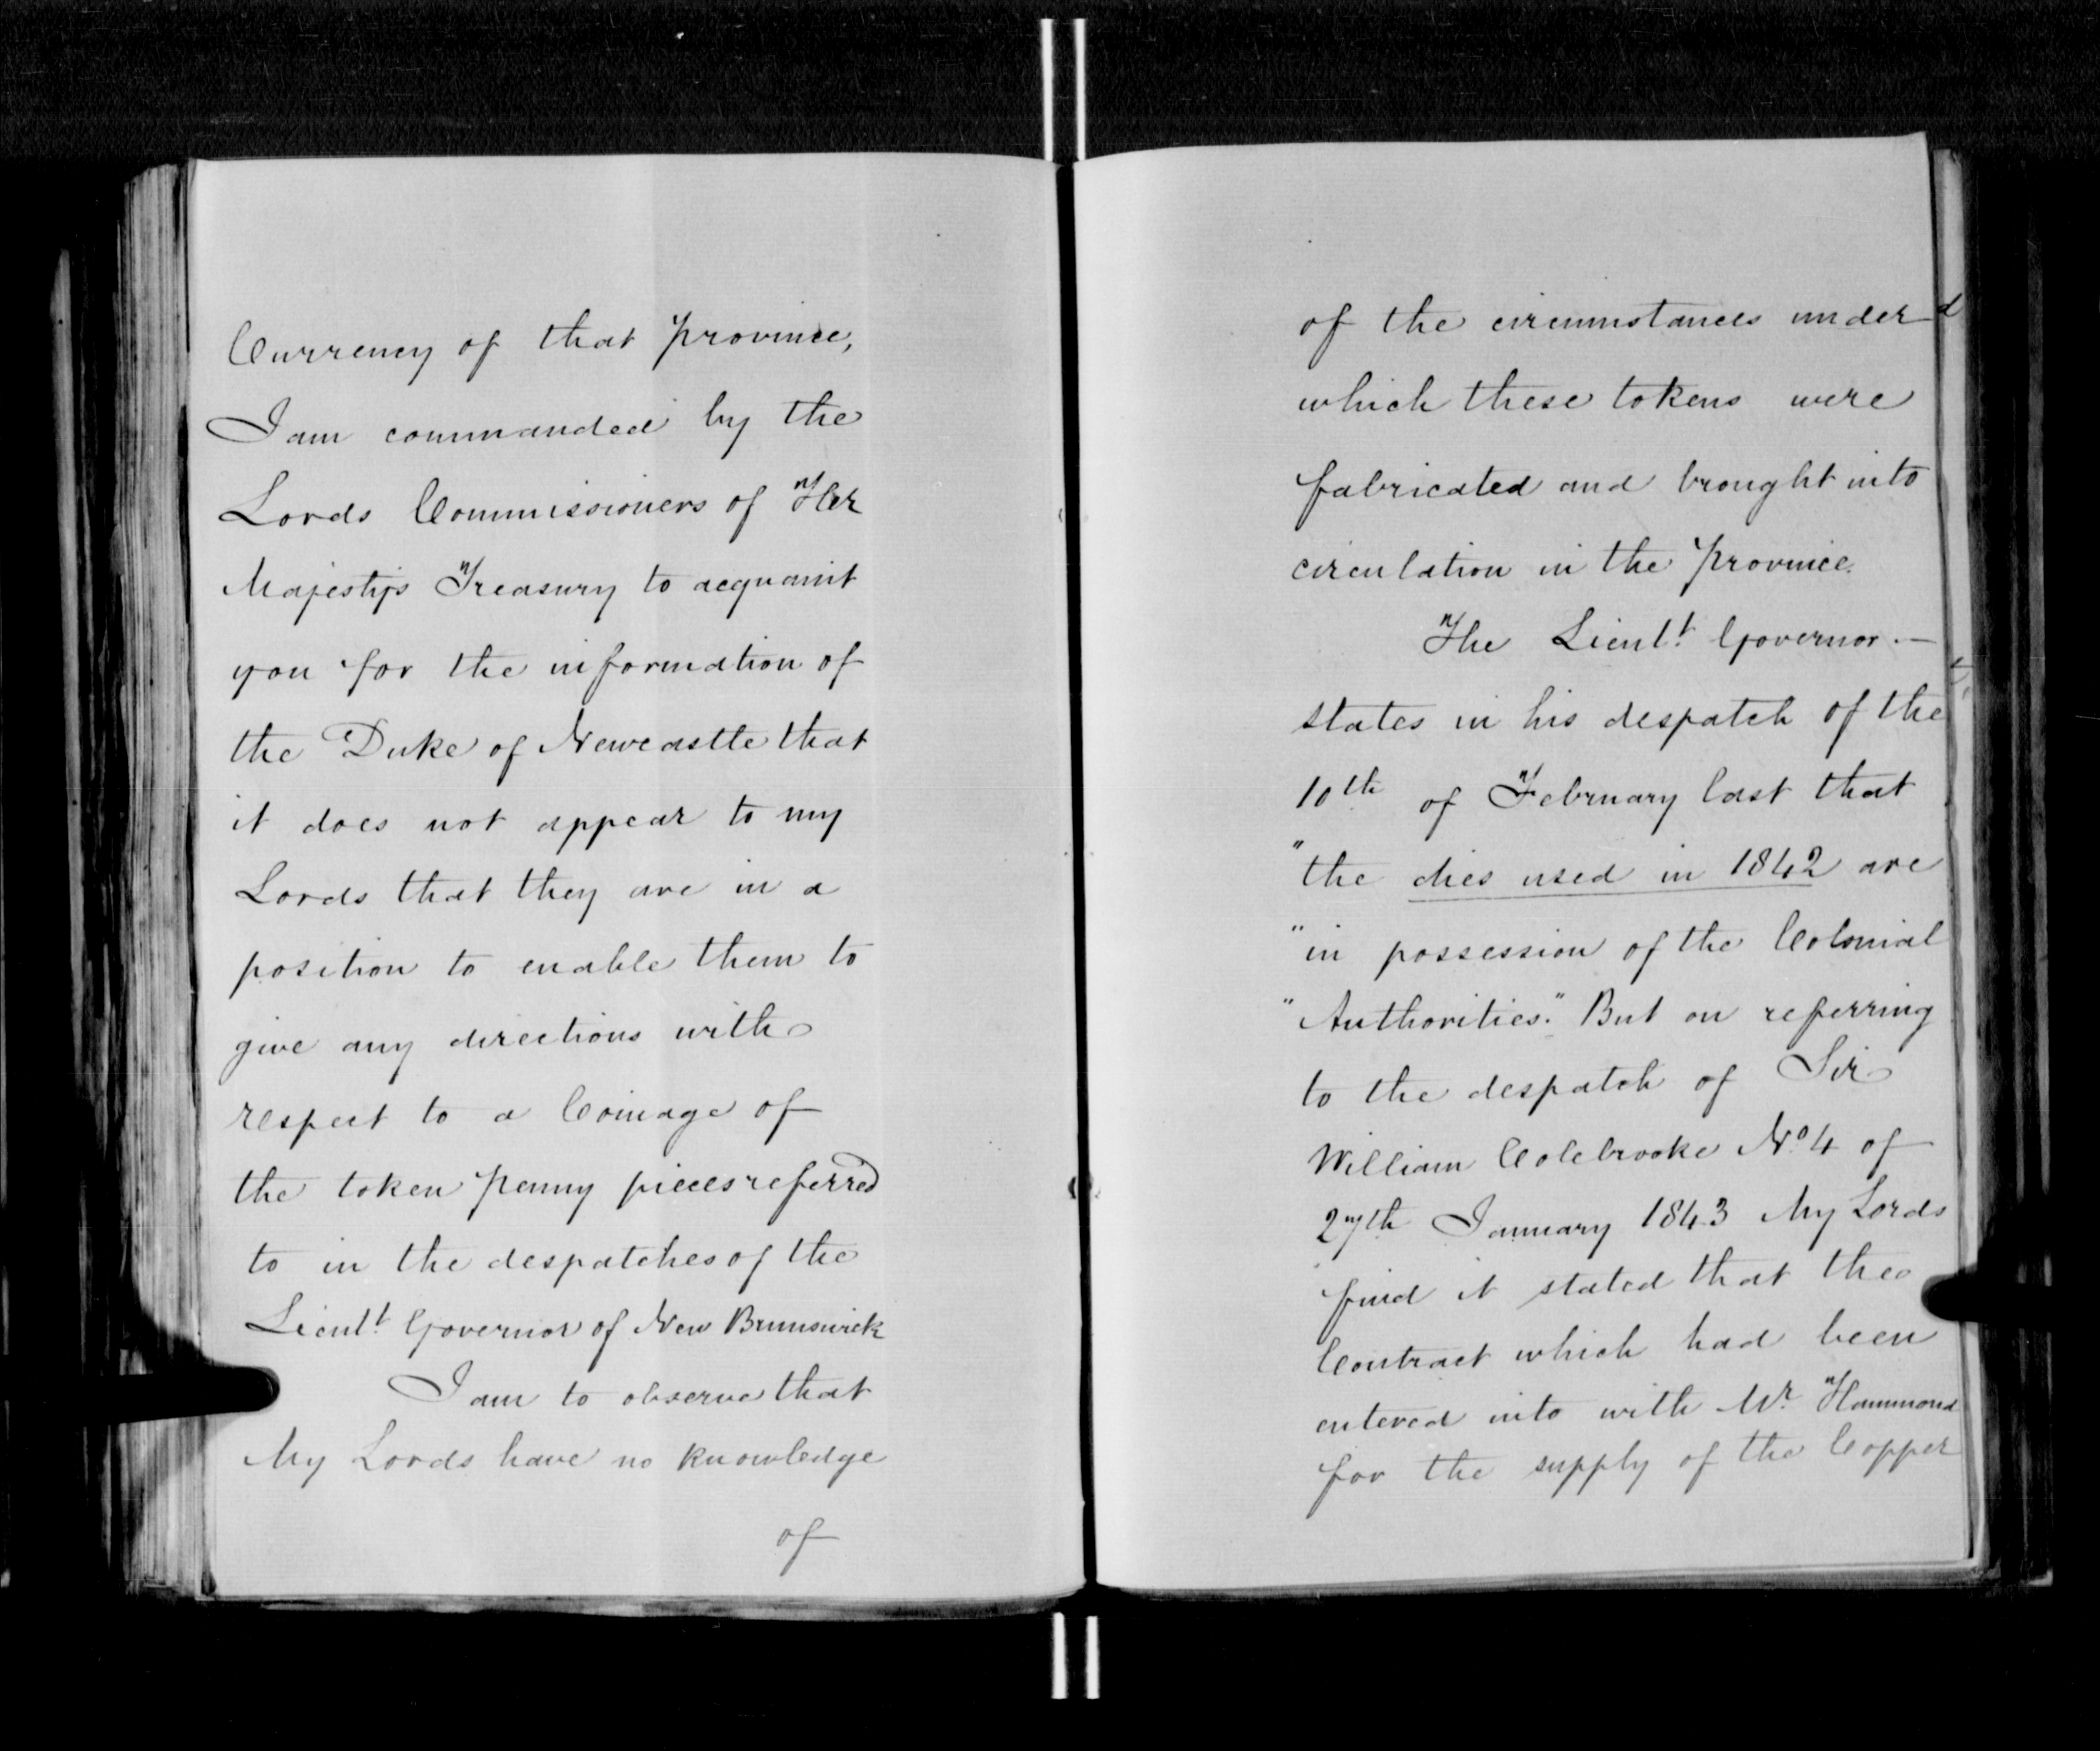 Currency of that Province,
I am commanded by the
Lords Commissioners of Her
Majesty's Treasury to acquaint
you for the information of
the Duke of Newcastle that
it does not appear to my
Lords that they are in a
position to enable them to
give any directions with
respect to a Coinage of
the token Penny pieces referred
to in the despatches of the
Lieutt Governor of New Brunswick
I am to observe that
My Lords have no knowledge
of
of the circumstances under
which these tokens were
fabricated and brought into
circulation in the Province.
The Lieutt Governor.—
states in his despatch of the
10th of February last that
"the dies used in 1842 are
"in possession of the Colonial
"Authorities." But on referring
to the despatch of Sir
William Colebrooke No 4 of
27th January 1843 My Lords
find it stated that the
Contract which had been
entered into with Mr Hammond
for the supply of the Copper